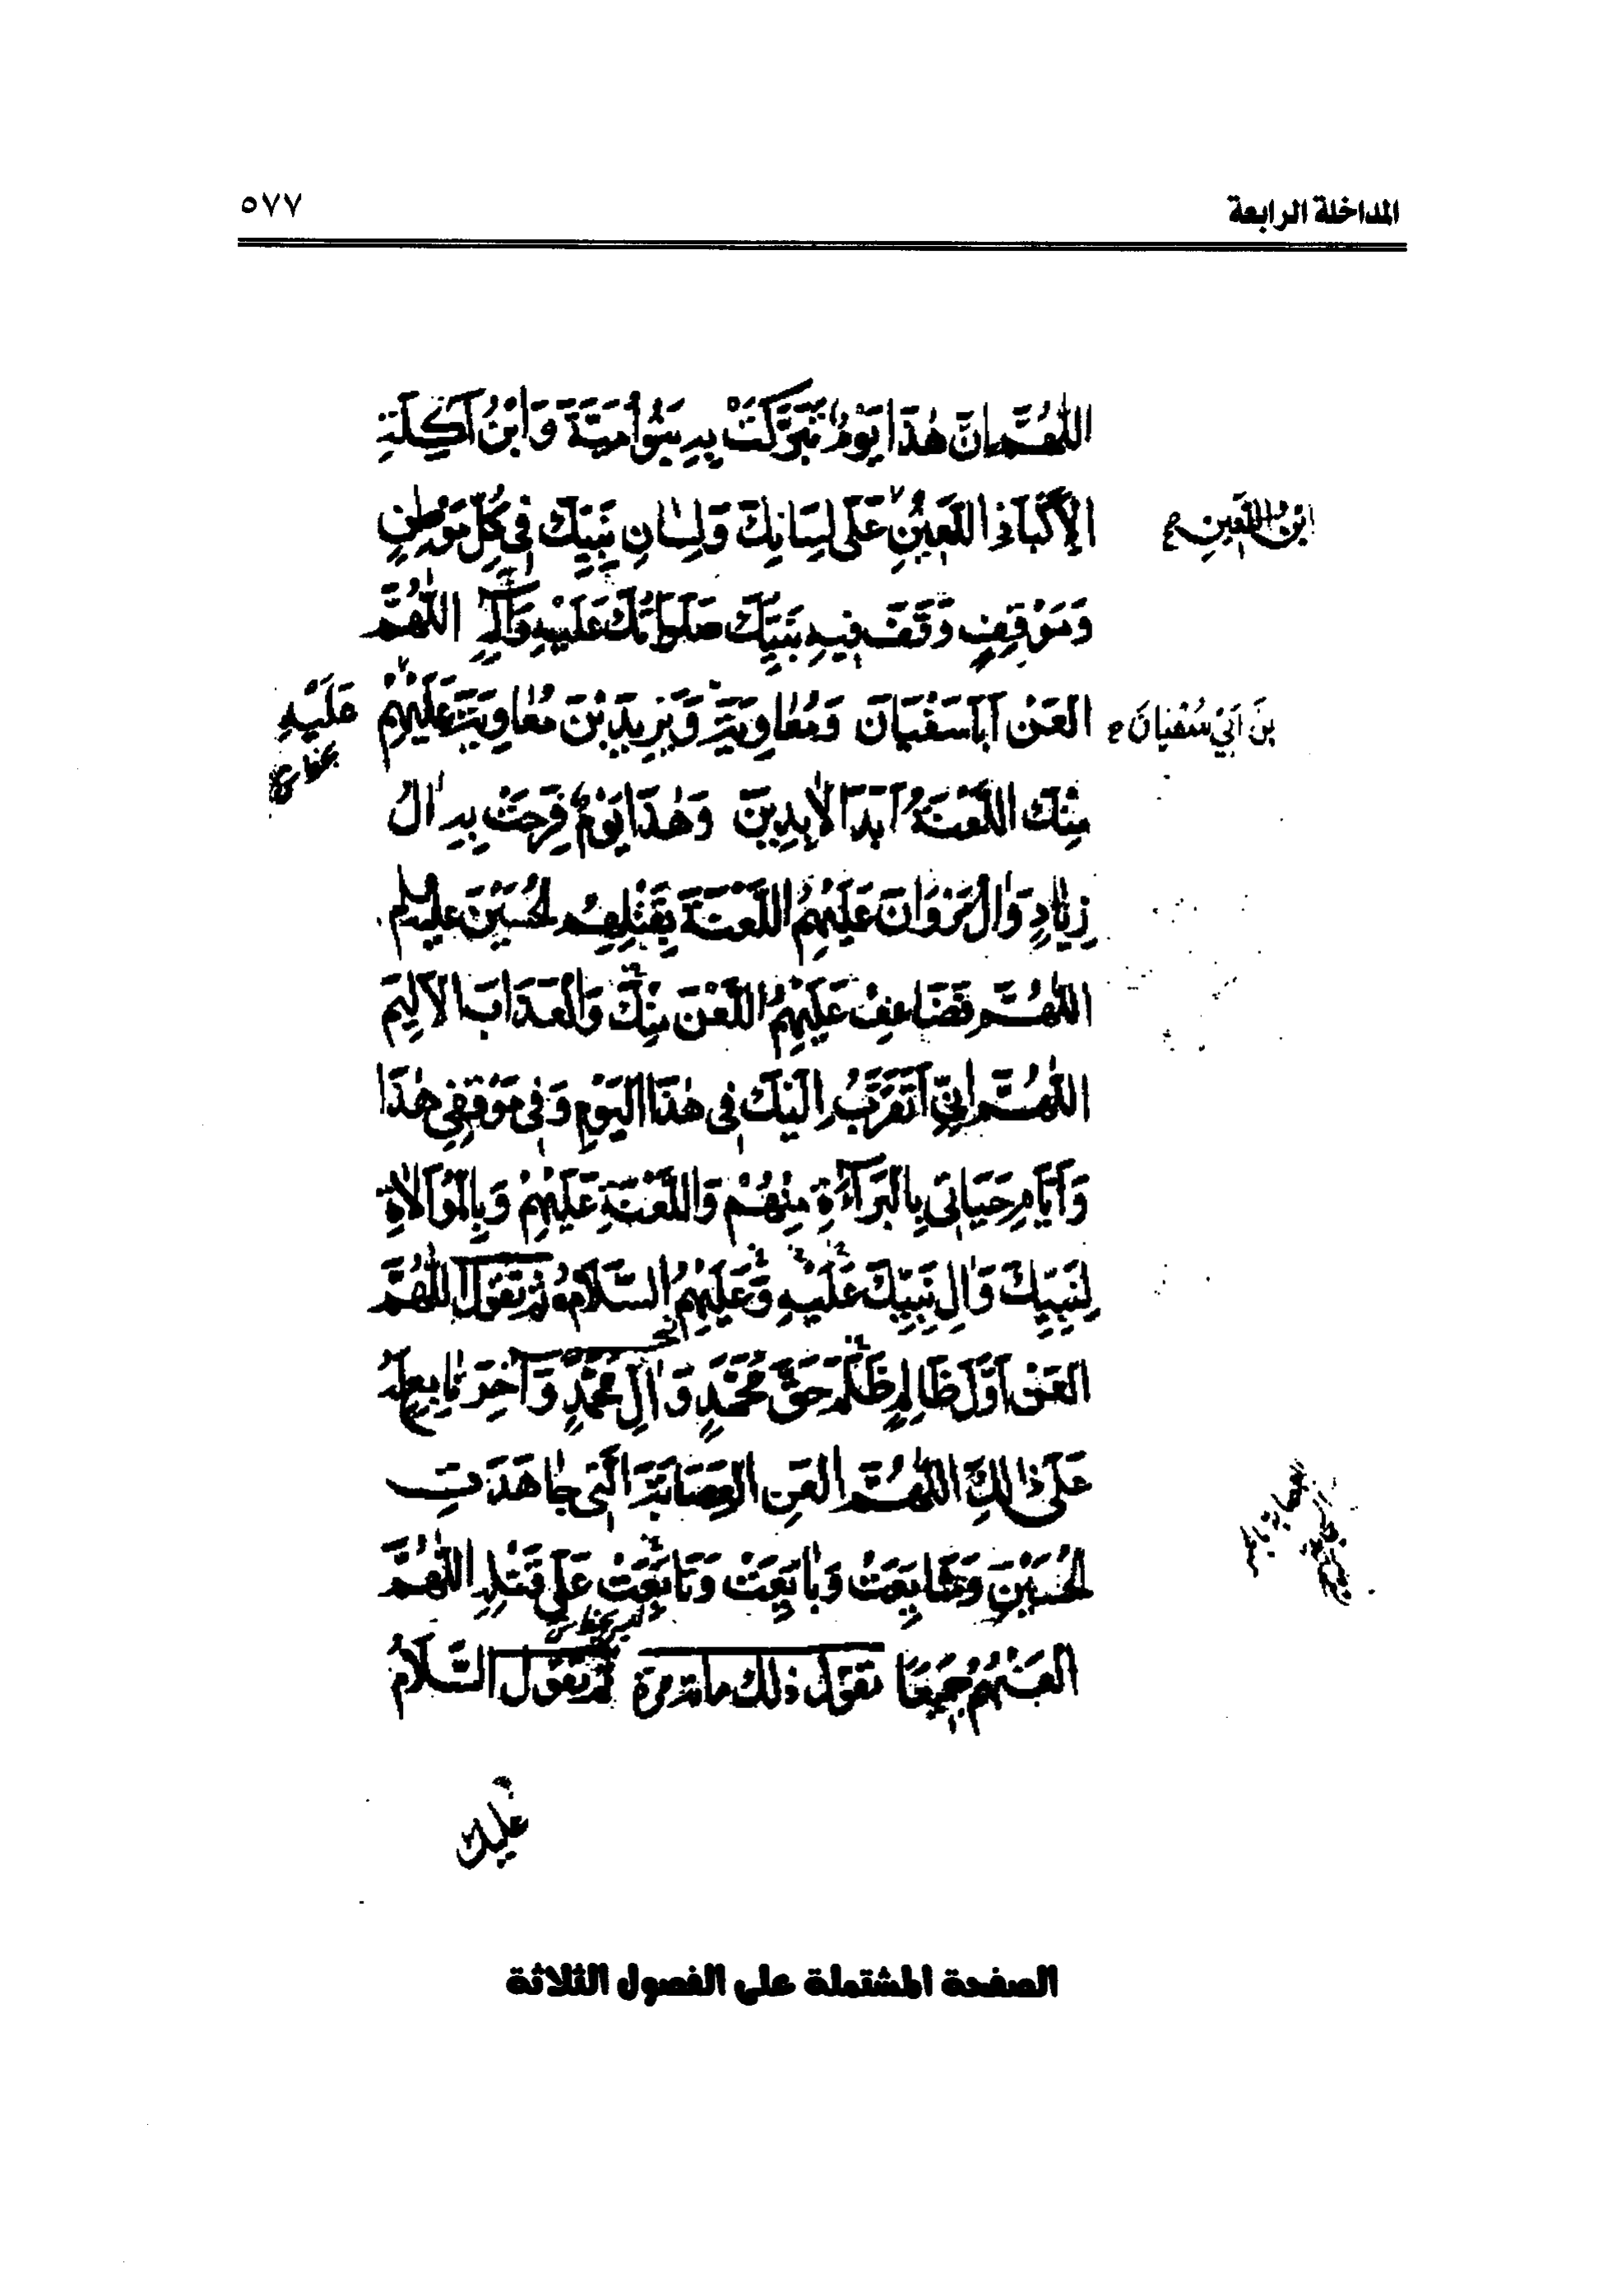 المداخلة الرابعة
٥٧٧
اللّٰهُمَّ اِنَّ هٰذَا يَوْمٌ تَبَرَّكَتْ بِهِ بَنُو اُمَيَّةَ وَابْنُ آكِلَةِ
الْاَكْبَادِ اللَّعِينُ عَلَى لِسَانِكَ وَلِسَانِ نَبِيِّكَ فِي كُلِّ مَوْطِنٍ
ابْنُ اللَّعِينِ
وَمَوْقِفٍ وَقَفَ فِيهِ نَبِيُّكَ صَلَوَاتُكَ عَلَيْهِ وَآلِهِ اللّٰهُمَّ
الْعَنْ اَبَا سُفْيَانَ وَمُعَاوِيَةَ وَيَزِيدَ بْنَ مُعَاوِيَةَ عَلَيْهِمْ
بْنَ اَبِي سُفْيَانَ
عَلَيْهِ
مِنْكَ اللَّعْنَةُ اَبَدَ الْاٰبِدِينَ وَهٰذَا يَوْمٌ فَرِحَتْ بِهِ اٰلُ
زِيَادٍ وَاٰلُ مَرْوَانَ عَلَيْهِمُ اللَّعْنَةُ بِقَتْلِهِمُ الْحُسَيْنَ عليه السلم
اللّٰهُمَّ فَضَاعِفْ عَلَيْهِمُ اللَّعْنَ مِنْكَ وَالْعَذَابَ الْاَلِيمَ
اللّٰهُمَّ اِنِّي اَتَقَرَّبُ اِلَيْكَ فِي هٰذَا الْيَوْمِ وَفِي مَوْقِفِي هٰذَا
وَاَيَّامِ حَيَاتِي بِالْبَرَآءَةِ مِنْهُمْ وَاللَّعْنَةِ عَلَيْهِمْ وَبِالْمُوَالَاةِ
لِنَبِيِّكَ وَاٰلِ نَبِيِّكَ عَلَيْهِ وَعَلَيْهِمُ السَّلَامُ ثم تقول اللّٰهُمَّ
الْعَنْ اَوَّلَ ظَالِمٍ ظَلَمَ حَقَّ مُحَمَّدٍ وَاٰلِ مُحَمَّدٍ وَآخِرَ تَابِعٍ لَهُ
عَلَى ذٰلِكَ اللّٰهُمَّ الْعَنِ الْعِصَابَةَ الَّتِي جَاهَدَتِ
الْحُسَيْنَ وَشَايَعَتْ وَبَايَعَتْ وَتَابَعَتْ عَلَى قَتْلِهِ اللّٰهُمَّ
الْعَنْهُمْ جَمِيعًا تقول ذلك مائة مرة ثم تقول السَّلَامُ
عليك
الصفحة المشتملة على الفصول الثلاثة